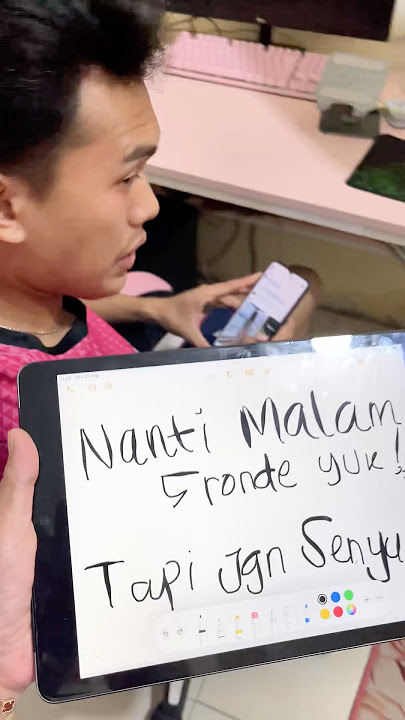 Nanti Malam
5 ronde yuk!
Tapi Jgn Senyu